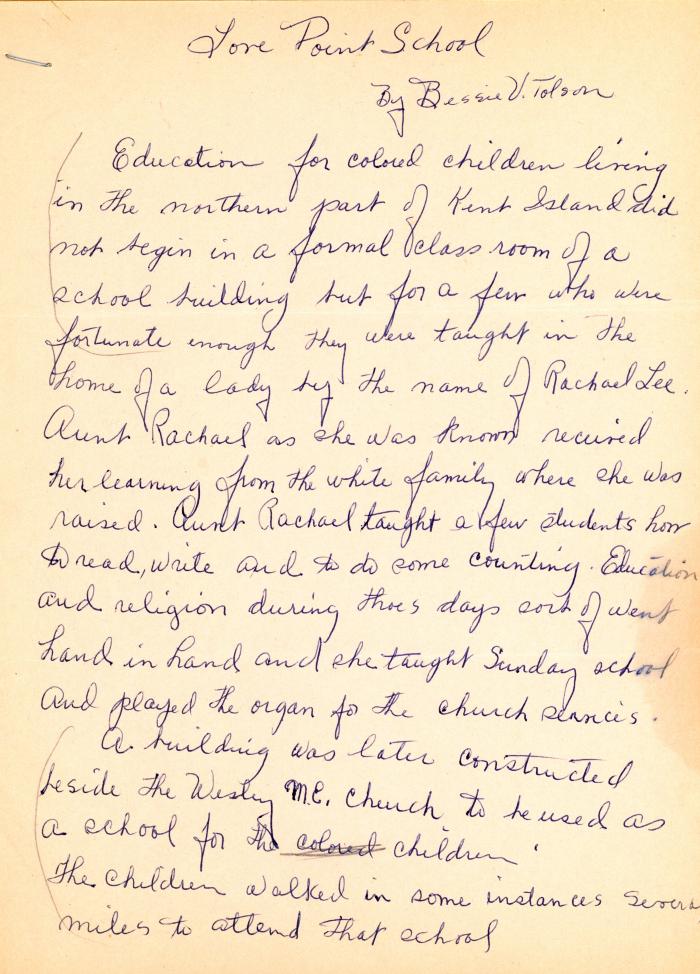 Love Point School
By Bessie V. Tolson
Education for colored children living
in the northern part of Kent Island did
not begin in a formal class room of a
school building but for a few who were
fortunate enough they were taught in the
home of a lady by the name of Rachael Lee.
Aunt Rachael as she was known received
her learning from the white family where she was
raised. Aunt Rachael taught a few students how
to read, write and to do some counting. Education
and religion during thoes days sort of went
hand in hand and she taught Sunday school
and played the organ for the church services.
A building was later constructed
beside the Wesley M.E. Church to be used as
a school for the colored children.
The children walked in some instances severa
miles to attend that school